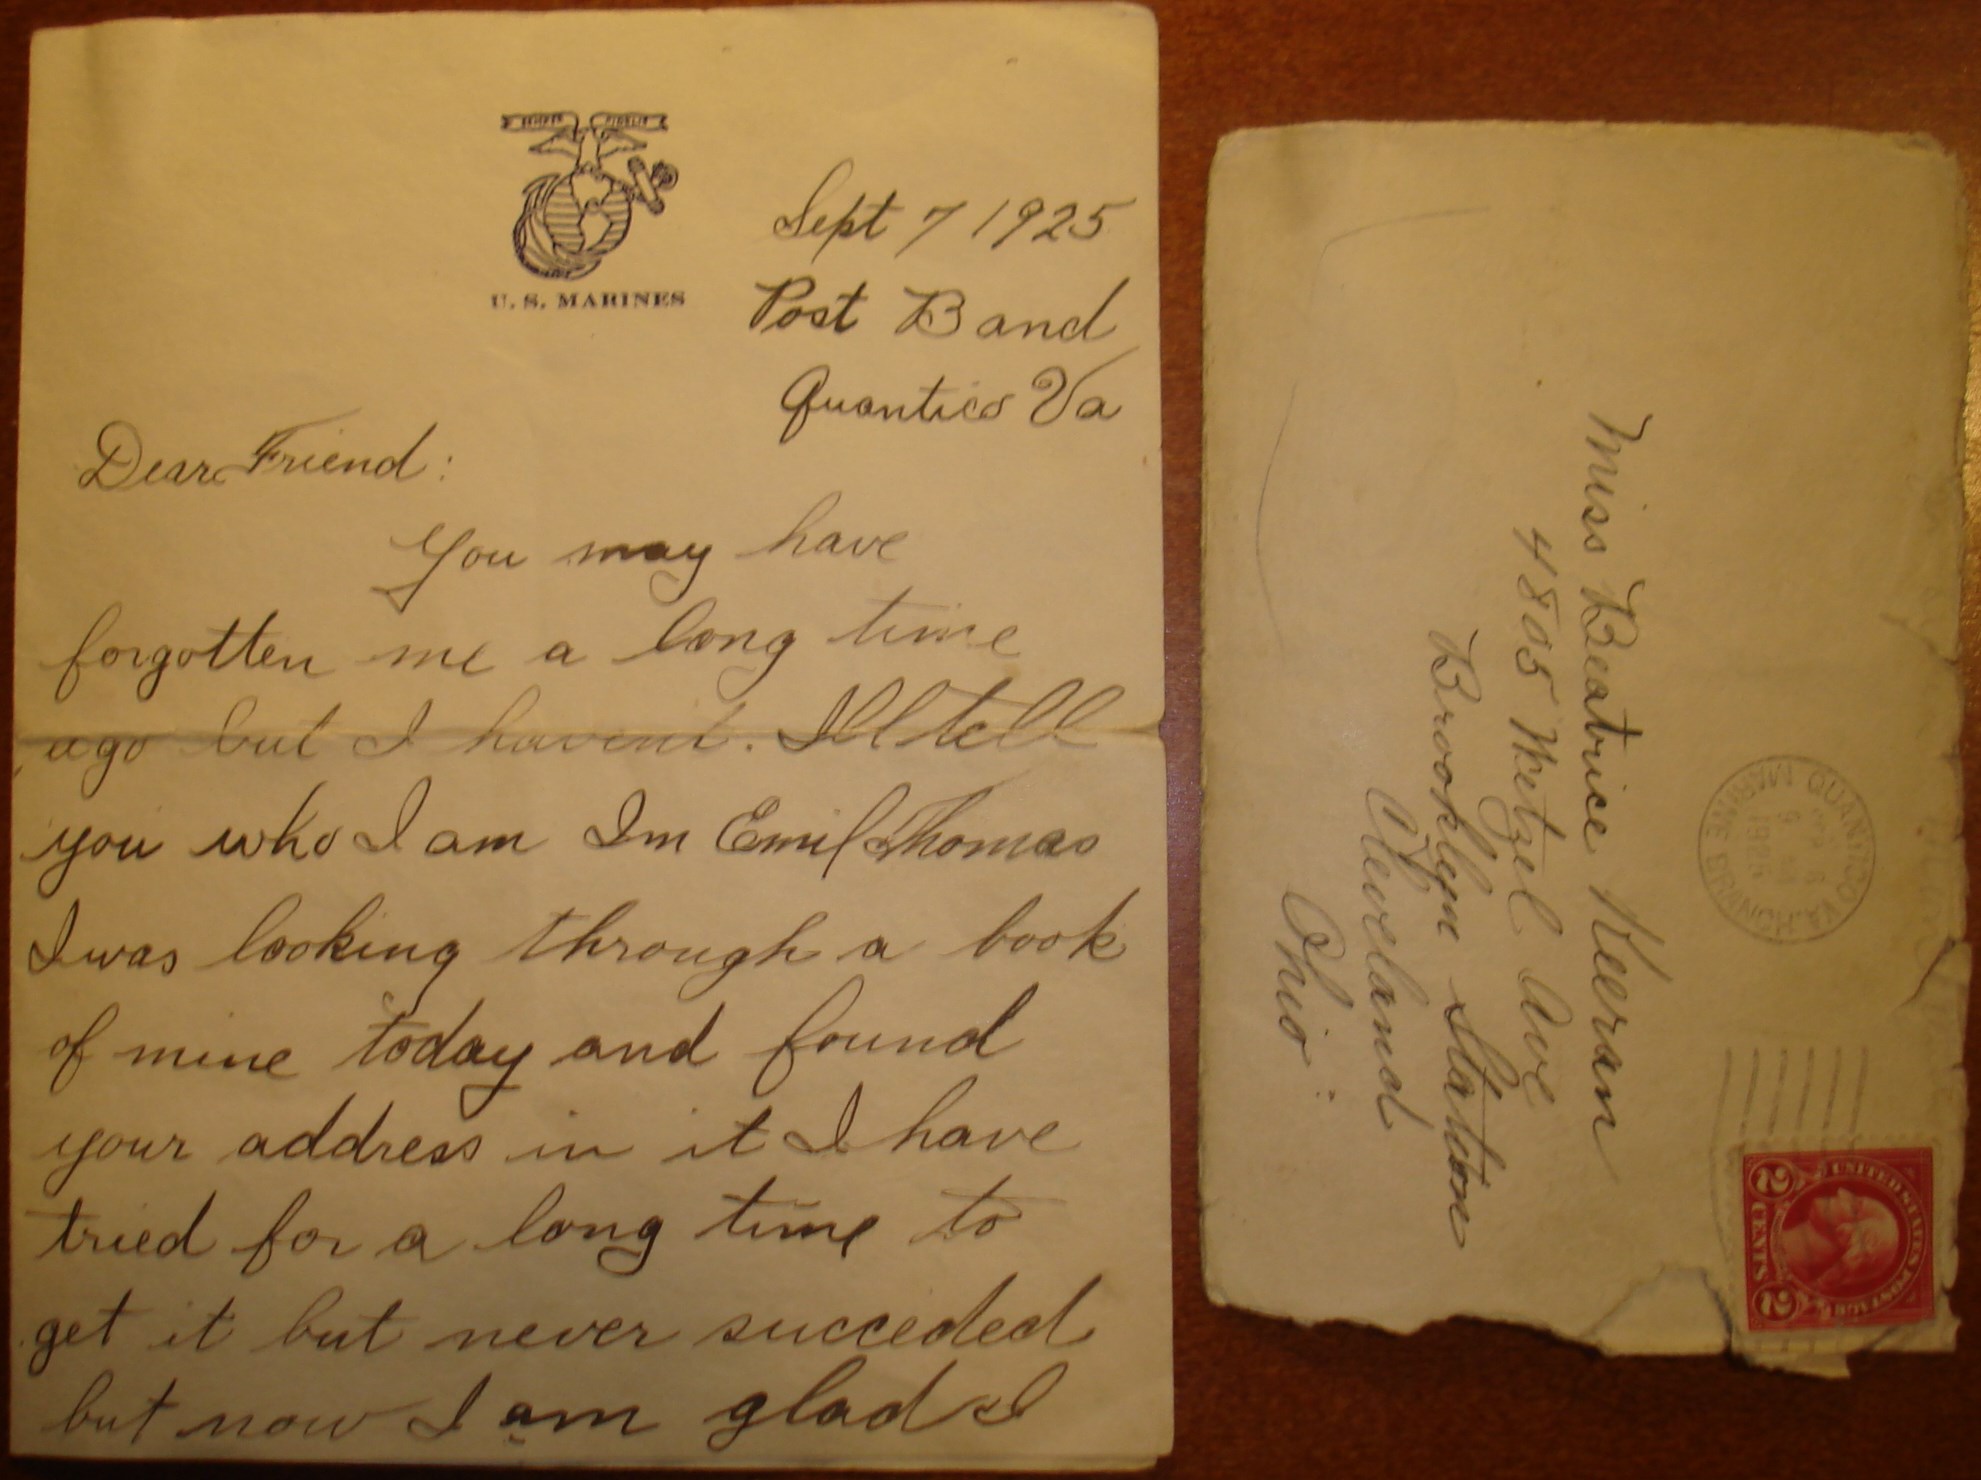 SEMPER FIDELIS
U. S. MARINES
Sept 7 1925
Post Band
Quantico Va
Dear Friend:
You may have
forgotten me a long time
ago but I havent. Ill tell
you who I am Im Emil Thomas
I was looking through a book
of mine today and found
your address in it I have
tried for a long time to
get it but never succeded
but now I am glad I
Miss Beatrice Keeran
4805 Wetzel Ave
Brooklyn Station
Cleveland
Ohio
QUANTICO VA.
1925
MARINE BRANCH
UNITED STATES POSTAGE
2 CENTS 2